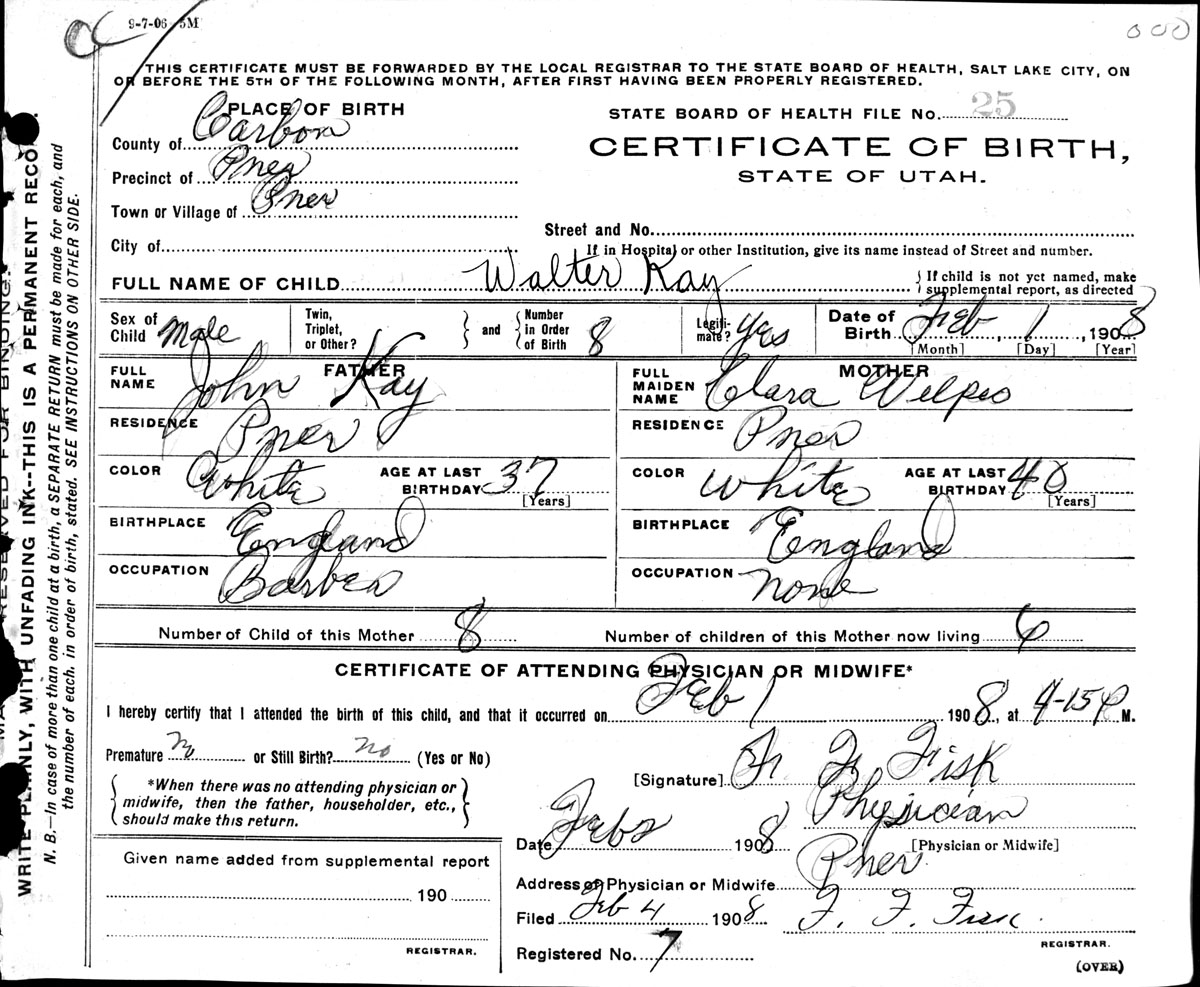 9-7-06 5M
000
THIS CERTIFICATE MUST BE FORWARDED BY THE LOCAL REGISTRAR TO THE STATE BOARD OF HEALTH, SALT LAKE CITY, ON
OR BEFORE THE 5TH OF THE FOLLOWING MONTH, AFTER FIRST HAVING BEEN PROPERLY REGISTERED.
PLACE OF BIRTH
County of Carbon
Precinct of
Town or Village of
City of
STATE BOARD OF HEALTH FILE No. 25
CERTIFICATE OF BIRTH,
STATE OF UTAH.
Street and No.
If in Hospital or other Institution, give its name instead of Street and number.
FULL NAME OF CHILD Walter Kay
{ If child is not yet named, make
supplemental report, as directed
Sex of Child Male
Twin, Triplet, or Other? } and { Number in Order of Birth 8
Legitimate? Yes
Date of Birth Feb 1, 1908
[Month] [Day] [Year]
FATHER
FULL NAME John Kay
RESIDENCE
COLOR White AGE AT LAST BIRTHDAY 37 [Years]
BIRTHPLACE England
OCCUPATION Barber
MOTHER
FULL MAIDEN NAME Clara
RESIDENCE
COLOR White AGE AT LAST BIRTHDAY 40 [Years]
BIRTHPLACE England
OCCUPATION None
Number of Child of this Mother 8 Number of children of this Mother now living 6
CERTIFICATE OF ATTENDING PHYSICIAN OR MIDWIFE*
I hereby certify that I attended the birth of this child, and that it occurred on Feb 1 1908, at 4-15 P M.
Premature No or Still Birth? no (Yes or No)
{ *When there was no attending physician or
midwife, then the father, householder, etc.,
should make this return. }
[Signature] F. F. Fisk
Physician
[Physician or Midwife]
Date Feb 2 1908
Address of Physician or Midwife
Filed Feb 4 1908 F. F. Fisk
REGISTRAR.
Registered No. 7
(OVER)
Given name added from supplemental report
190
REGISTRAR.
RESERVED FOR BINDING.
WRITE PLAINLY, WITH UNFADING INK--THIS IS A PERMANENT RECO
N. B.—In case of more than one child at a birth, a SEPARATE RETURN must be made for each, and
the number of each, in order of birth, stated. SEE INSTRUCTIONS ON OTHER SIDE.